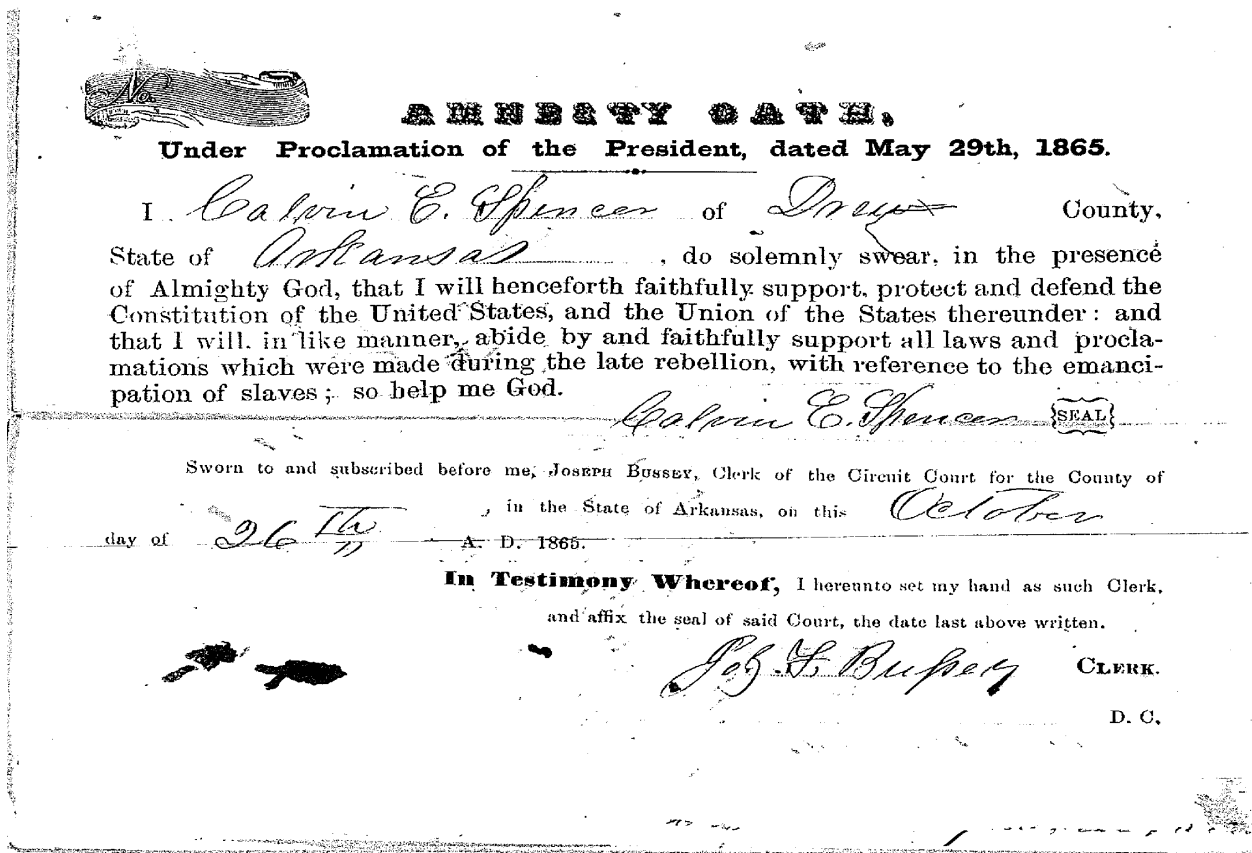 No.
AMNESTY OATH,
Under Proclamation of the President, dated May 29th, 1865.
I Calvin E. Spencer of Drew County,
State of Arkansas, do solemnly swear, in the presence
of Almighty God, that I will henceforth faithfully support, protect and defend the
Constitution of the United States, and the Union of the States thereunder: and
that I will, in like manner, abide by and faithfully support all laws and procla-
mations which were made during the late rebellion, with reference to the emanci-
pation of slaves; so help me God.
Calvin E. Spencer SEAL
Sworn to and subscribed before me, JOSEPH BUSSEY, Clerk of the Circuit Court for the County of
, in the State of Arkansas, on this October
day of 26th A. D. 1865.
In Testimony Whereof, I hereunto set my hand as such Clerk,
and affix the seal of said Court, the date last above written.
Jos F Bussey CLERK.
D. C.